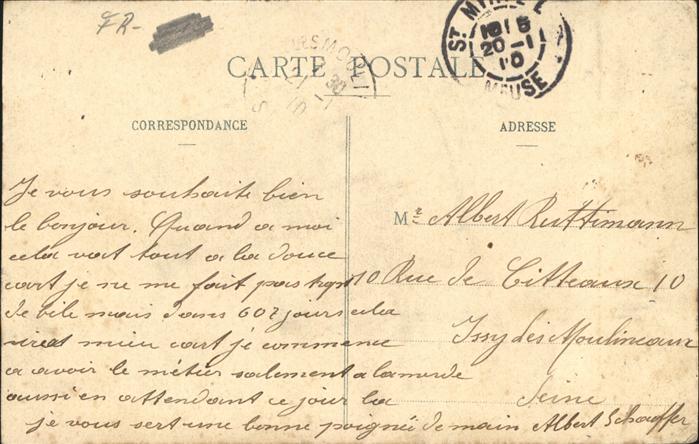 FR-
CARTE POSTALE
ST MIHIEL
18 15
20 -1
10
MEUSE
CORRESPONDANCE
ADRESSE
Je vous souhaite bien
le bonjour. Quand a moi
cela vat tout a la douce
cart je ne me fait pas trop
de bile mais dans 602 jours cela
iras mieu cart je commence
a avoir le métier salement a la merde
aussi en attendant ce jour la
je vous sert une bonne poignée de main Albert Schaeffer
Mr Albert Ruttimann
10 Rue de Citteaux 10
Issy les Moulineaux
Seine